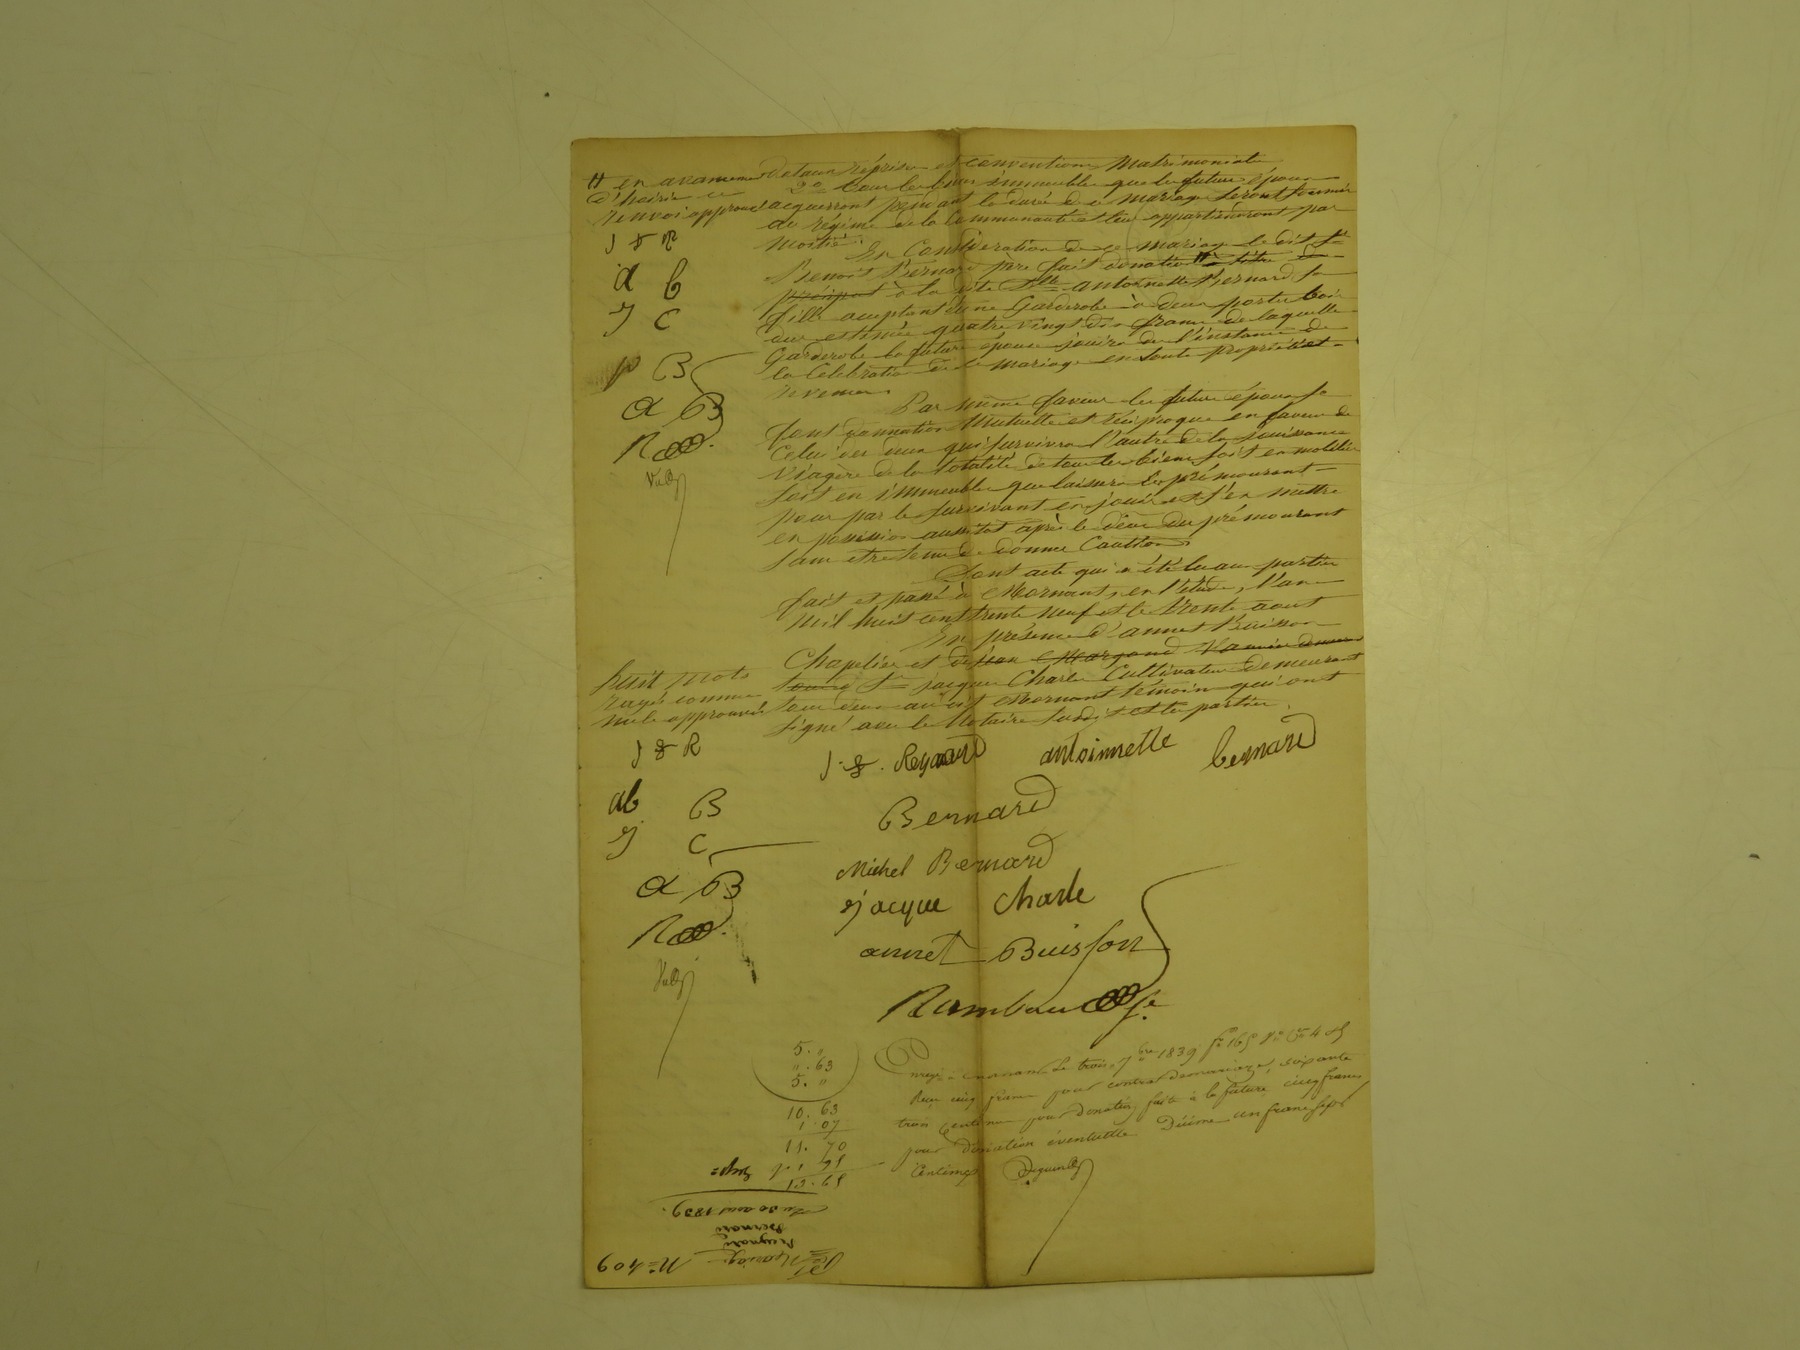 de leurs reprises et conventions Matrimoniales
2° Pour les biens immeubles que les futurs époux
acquerront pendant la durée de ce mariage seront soumis
au régime de la Communauté et leur appartiendront par
moitié.
En Considération de ce mariage le dit Sr
Benoit Bernard père fait donation # à titre de
préciput à la dite Dlle antoinette Bernard sa
fille acceptant d'une Garderobe à deux portes bois
dur estimée quatre vingt dix francs de laquelle
Garderobe la future épouse jouira de l'instant de
la Célébration de ce mariage en toute propriété et
revenus
Par même faveur les futurs époux se
font donnation Mutuelle et réciproque en faveur de
Celui des deux qui survivra l'autre de la jouissance
viagère de la totalité de tous les biens soit en mobilier
soit en immeubles que laissera le prémourant
pour par le survivant en jouir et s'en mettre
en possession aussitot après le décès du prémourant
sans etre tenu de donner Caution
Dont acte qui a été lu aux parties
fait et passé à Mornant, en l'étude, l'an
mil huit cent trente neuf et le trente aout
En présence d'annet Buisson
Chapelier et de jean Margand Vannier demeu
tous Sr jacques Charle Cultivateur demeurant
tous deux au dit Mornant témoins qui ont
signé avec le Notaire susdit et les parties.
# en avancement
d'hoirie ce
renvoi approuvé
J & R
a b
J C
B
a B
R
huit mots
rayés comme
nuls approuvés
J & R
ab B
J C
a B
R
J. & . Reynard antoinnette bernard
Bernard
Michel Bernard
jacque Charle
annet Buisson
Rambau
Enregé à mornant Le trois 7bre 1839 fo 165 Vo Ce 4 &5
Reçu cinq francs pour contrat de mariage, soixante
trois centimes pour donation faite à la future, cinq francs
pour donation éventuelle Dixième un franc sept
Centimes
5. "
". 63
5. "
10. 63
1. 07
11. 70
1. 95
13. 65
Du 30 aout 1839.
Bernard
Reynard
Mariage
No 409